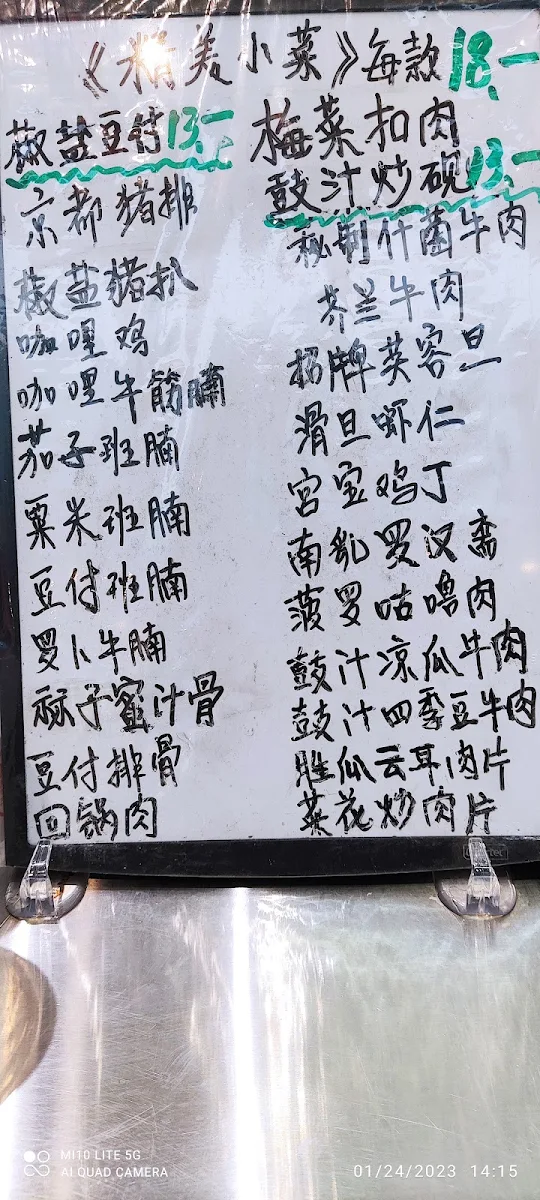 《精美小菜》每款18.-
椒盐豆付13.-
京都猪排
椒盐猪扒
咖哩鸡
咖哩牛筋腩
茄子班腩
粟米班腩
豆付班腩
罗卜牛腩
蜜汁骨
豆付排骨
回锅肉
梅菜扣肉
鼓汁炒砚13.-
秘制什菌牛肉
芥兰牛肉
招牌芙容旦
滑旦虾仁
宫宝鸡丁
南乳罗汉斋
菠罗咕噜肉
鼓汁凉瓜牛肉
鼓汁四季豆牛肉
胜瓜云耳肉片
菜花炒肉片
MI 10 LITE 5G
AI QUAD CAMERA
01/24/2023 14:15